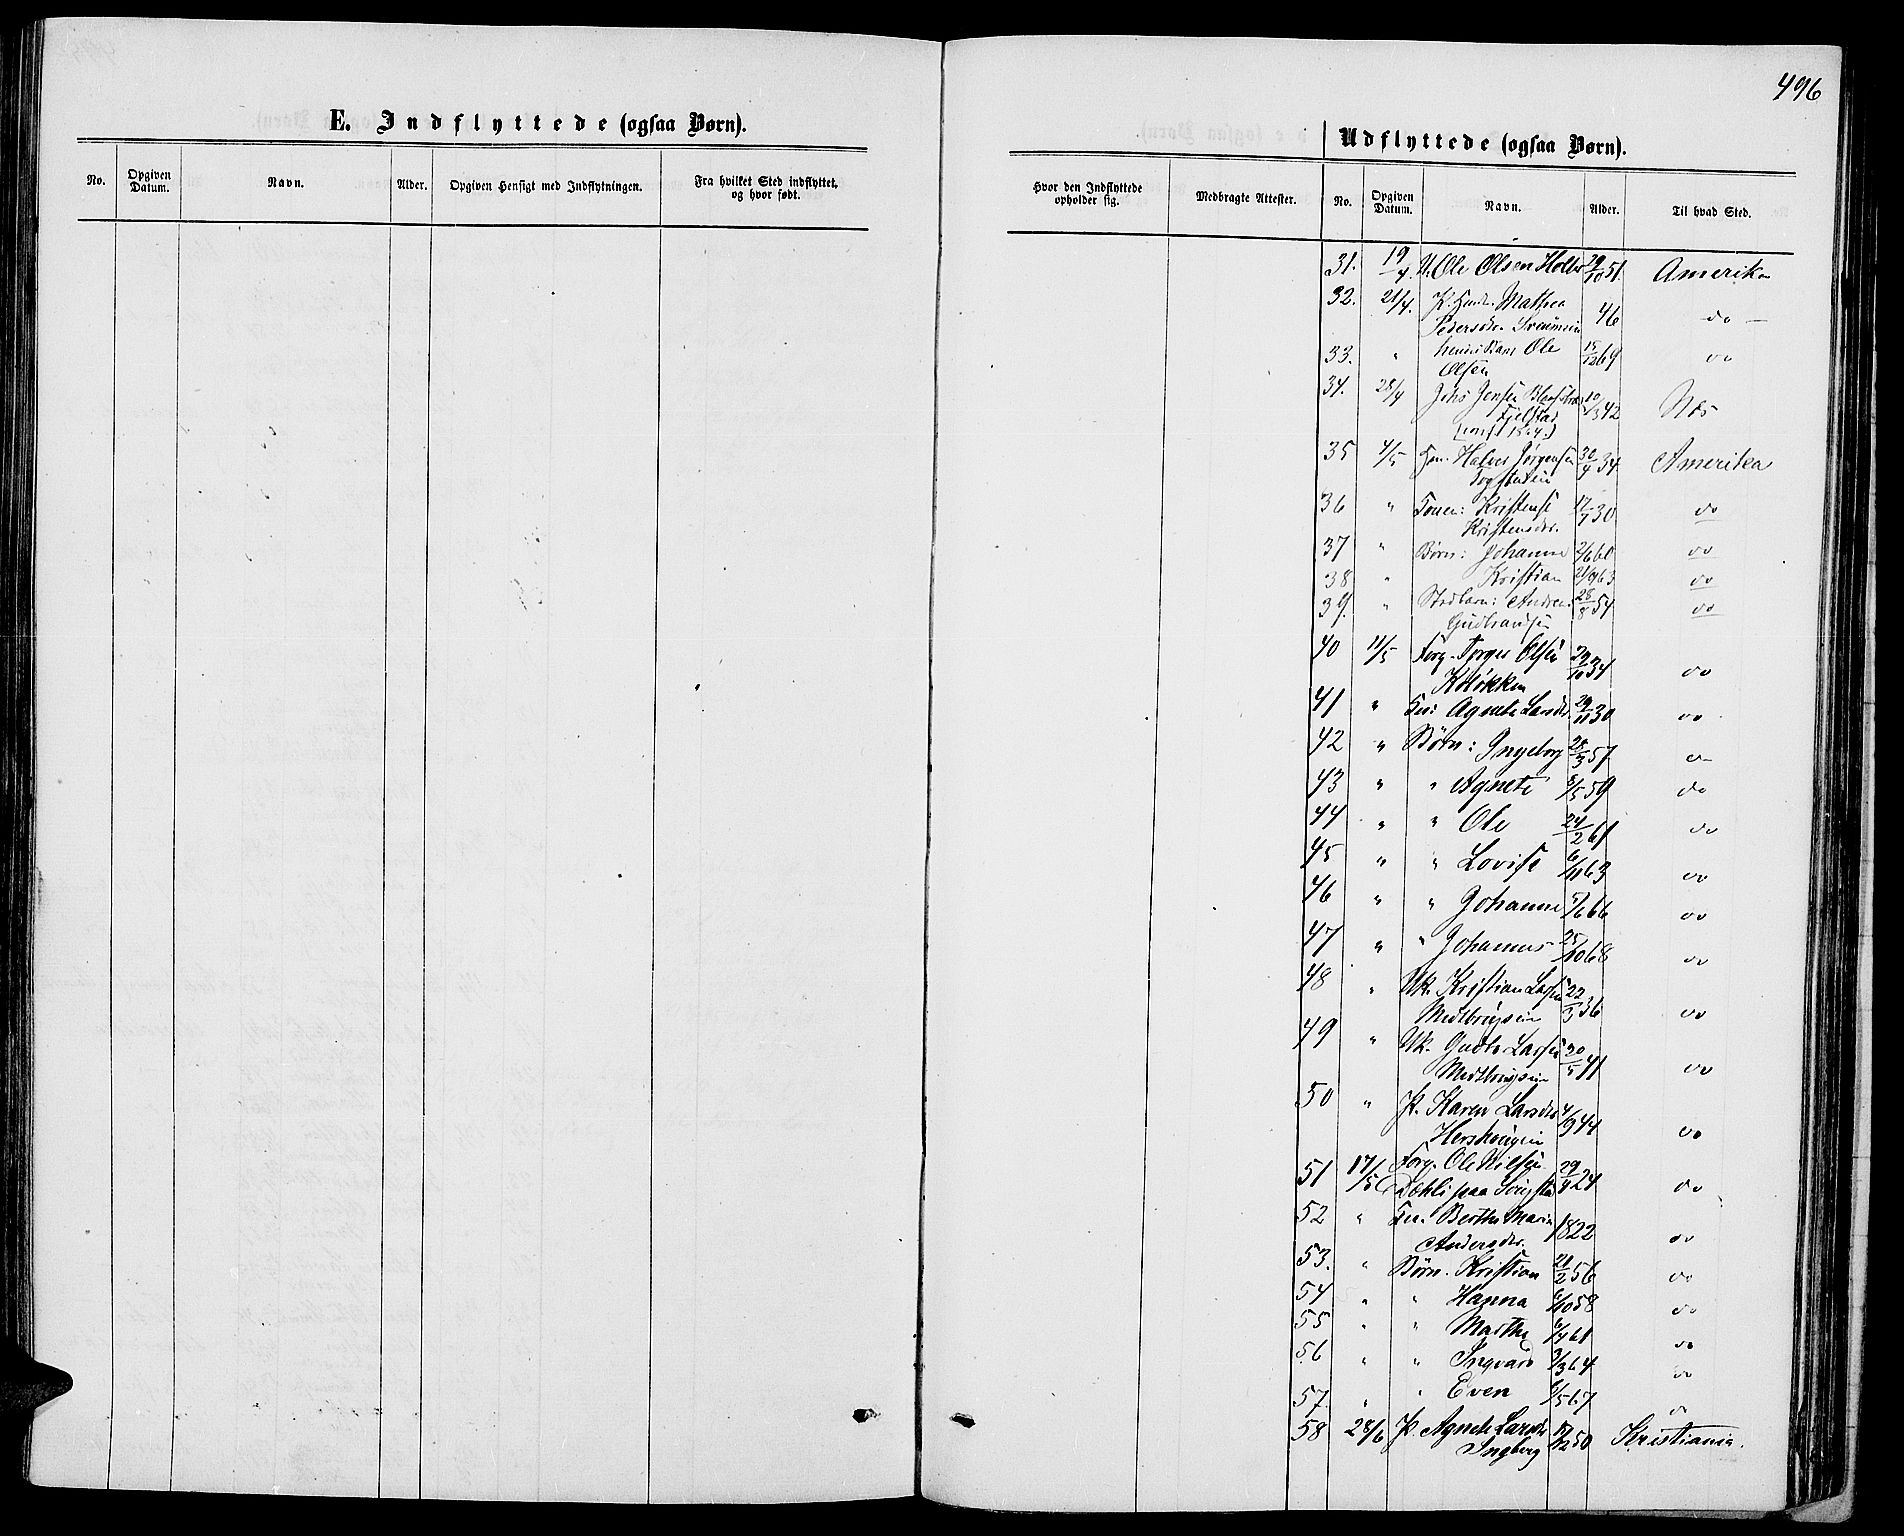 496
E. Indflyttede (ogsaa Børn).
No. Opgiven Datum. Navn. Alder. Opgiven Hensigt med Indflytningen. Fra hvilket Sted indflyttet, og hvor født.
Udflyttede (ogsaa Børn).
Hvor den Indflyttede opholder sig. Medbragte Attester. No. Opgiven Datum. Navn. Alder. Til hvad Sted.
31. 19/4. U. Ole Olsen 29/10 51. Amerika
32. 21/4. Mathea
Pedersdr. 46 do
33. " Ole 15/12 69 do
Olsen
34. 28/4 Johs Jensen 10/3 42 Næs
Fjelstad
35 4/5 Halvor Jørgensen 30/4 34 Amerika
36 " Konen: Kristense 17/7 30 do
Kristensdr.
37 " Børn: Johanne 2/6 60 do
38 " Kristian 21/9 63 do
39. " Stedbarn: Andrea 28/8 54 do
Gudbrandsen
40 11/5 Forp. Torger Olsen 29/10 34 do
41 " Agnete Larsdr. 29/11 30 do
42 " Børn: Ingeborg 28/3 57 do
43 " " Agnete 8/5 59 do
44 " " Ole 24/2 61 do
45 " " Lovise 6/11 63 do
46 " " Johanne 5/6 66 do
47 " " Johannes 25/10 68 do
48 " Uk. Kristian Larsen 22/3 36 do
49 " Uk. Gudbr. Larsen 20/5 41 do
50 " P. Karen Larsdr. 4/9 44 do
51 17/5 Forp. Ole Nilsen 29/4 24 do
Dæhli paa
52 " Berthe Marie 1822 do
Andersdr.
53. " Børn. Kristian 21/2 56 do
54 " " Hanna 6/10 58 do
55 " " Marthe 6/4 61 do
56 " " Ingvard 3/3 64 do
57. " " Even 6/5 67 do
58 28/6 P. Agnete Larsdr. 17/12 50 Kristiania.
Ingberg